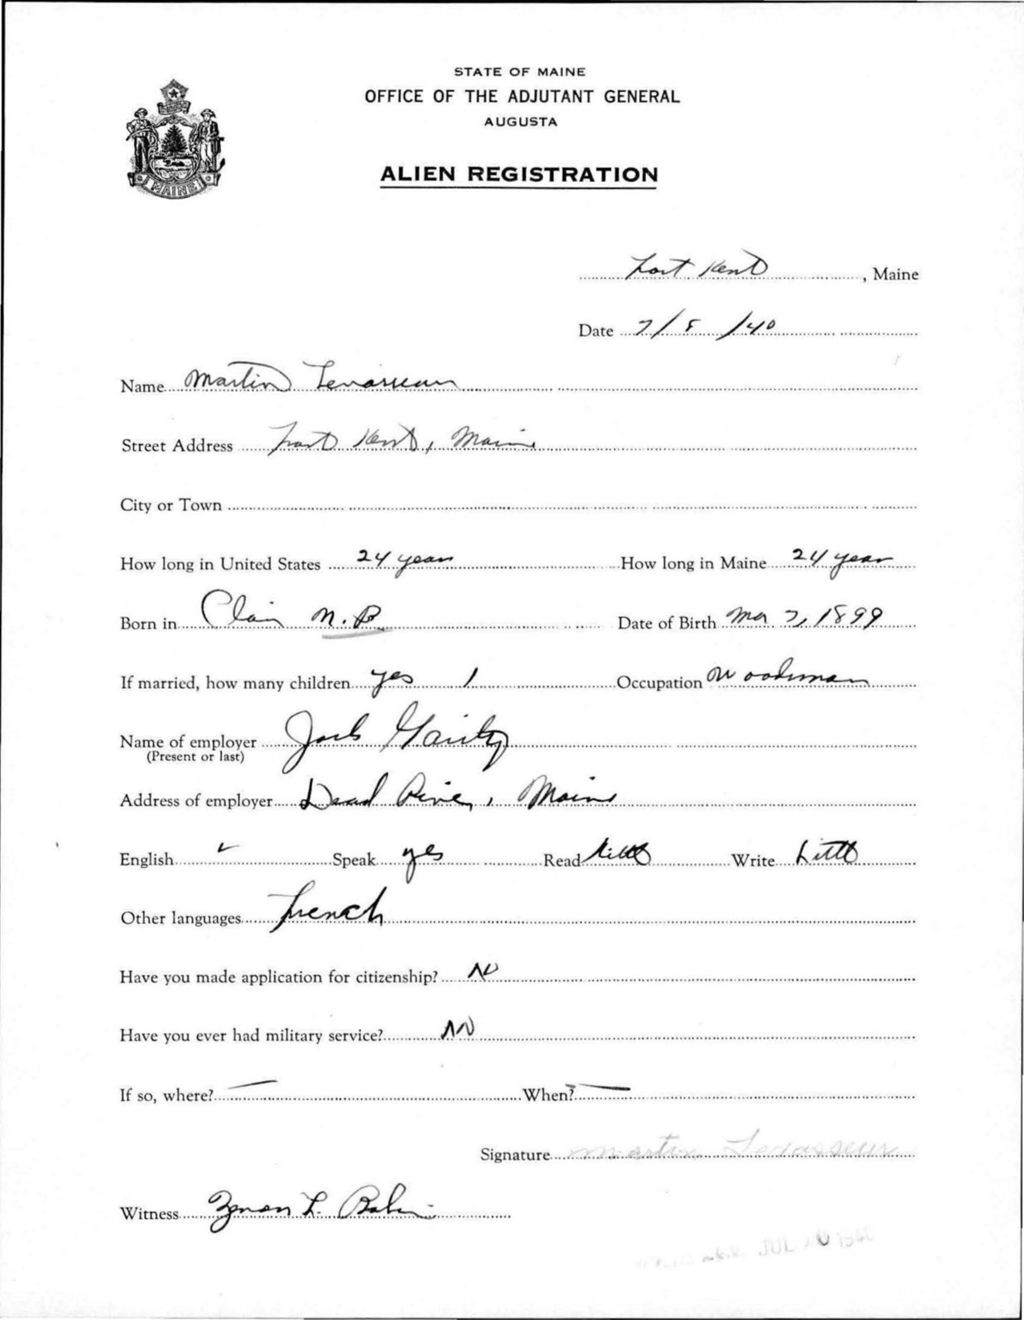 STATE OF MAINE
OFFICE OF THE ADJUTANT GENERAL
AUGUSTA
ALIEN REGISTRATION
MAINE
Fort Kent, Maine
Date 7/8/40
Name Martin Levasseur
Street Address Fort Kent, Maine
City or Town
How long in United States 24 years How long in Maine 24 years
Born in Clair N.B Date of Birth Mar 7, 1899
If married, how many children yes 1 Occupation Woodsman
Name of employer Jack
(Present or last)
Address of employer Dead River, Maine
English ✓ Speak yes Read Little Write Little
Other languages French
Have you made application for citizenship? No
Have you ever had military service? No
If so, where? — When? —
Signature Martin Levasseur
Witness L.
JUL 10 1940